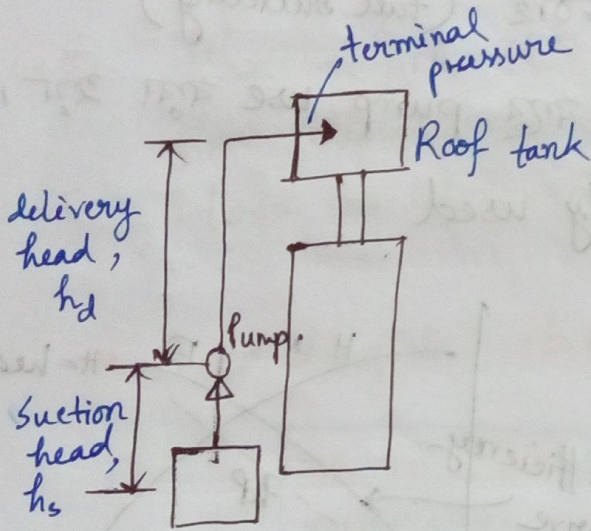 terminal
pressure
Roof tank
delivery
head,
hd
Pump.
Suction
head,
hs